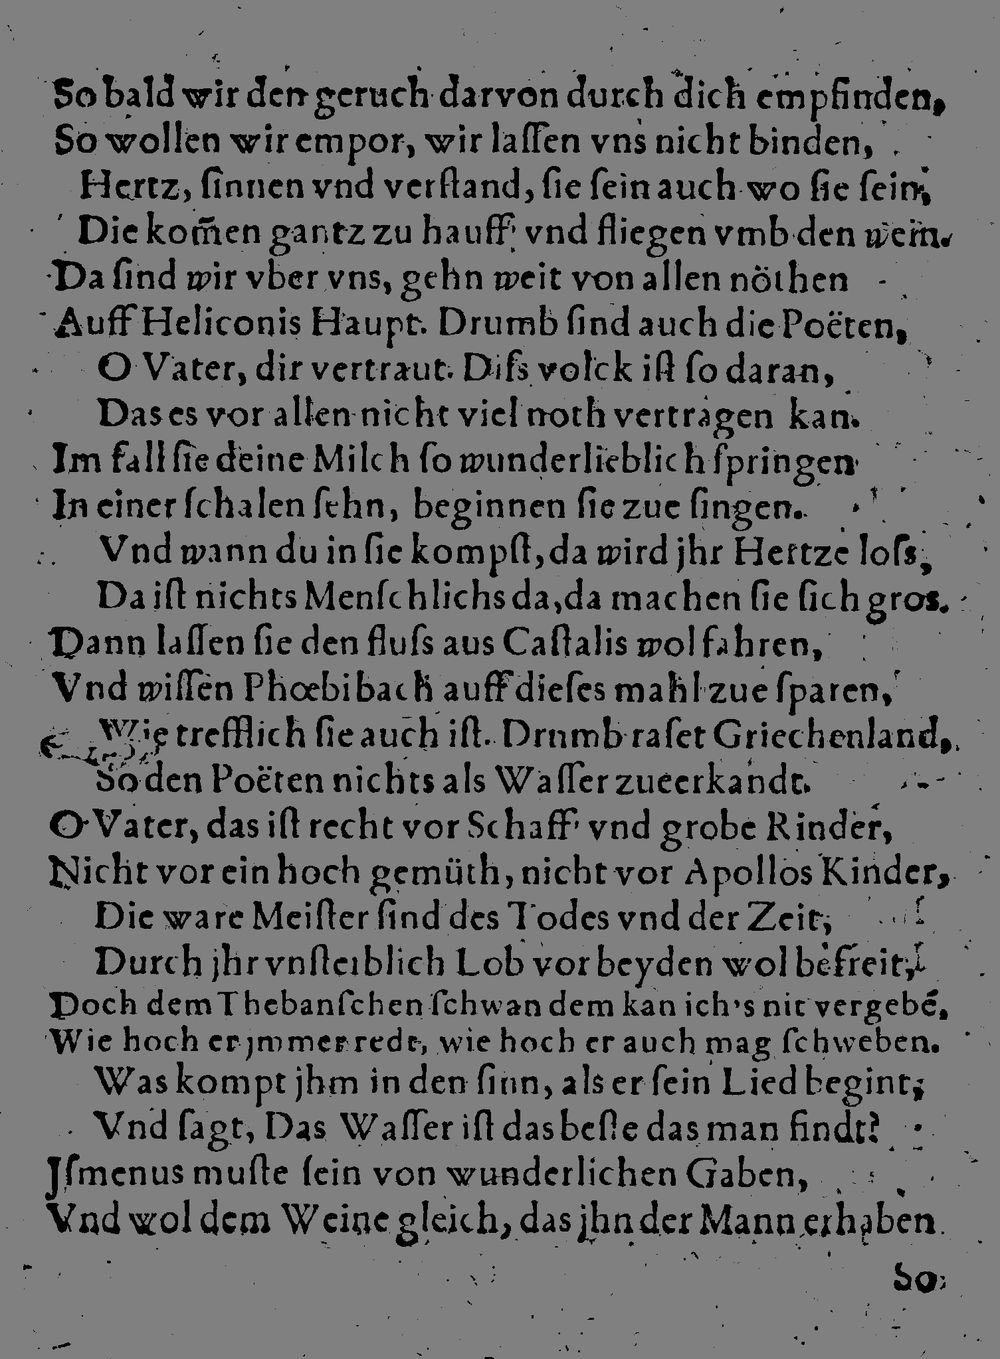 So bald wir den geruch darvon durch dich empfinden,
So wollen wir empor, wir laſſen vns nicht binden,
Hertz, ſinnen vnd verſtand, ſie ſein auch wo ſie ſein,
Die kom̃en gantz zu hauff vnd fliegen vmb den wein.
Da ſind wir vber vns, gehn weit von allen nöthen
Auff Heliconis Haupt. Drumb ſind auch die Poëten,
O Vater, dir vertraut. Diſs volck iſt ſo daran,
Das es vor allen nicht viel noth vertragen kan.
Im fall ſie deine Milch ſo wunderlieblich ſpringen
In einer ſchalen ſehn, beginnen ſie zue ſingen.
Vnd wann du in ſie kompſt, da wird jhr Hertze loſs,
Da iſt nichts Menſchlichs da, da machen ſie ſich gros.
Dann laſſen ſie den fluſs aus Caſtalis wol fahren,
Vnd wiſſen Phœbi bach auff dieſes mahl zue ſparen,
Wie trefflich ſie auch iſt. Drnmb raſet Griechenland,
So den Poëten nichts als Waſſer zueerkandt.
O Vater, das iſt recht vor Schaff vnd grobe Rinder,
Nicht vor ein hoch gemüth, nicht vor Apollos Kinder,
Die ware Meiſter ſind des Todes vnd der Zeit,
Durch jhr vnſterblich Lob vor beyden wol befreit,
Doch dem Thebanſchen ſchwan dem kan ich's nit vergebẽ,
Wie hoch er jmmer redt, wie hoch er auch mag ſchweben.
Was kompt jhm in den ſinn, als er ſein Lied begint,
Vnd ſagt, Das Waſſer iſt das beſte das man findt?
Jſmenus muſte ſein von wunderlichen Gaben,
Vnd wol dem Weine gleich, das jhn der Mann erhaben
So